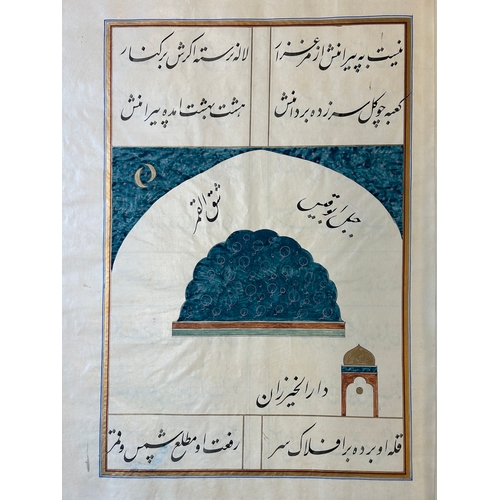 نیست به پیرامنش از مرغزار لاله رسته اکرش بر کنار
کعبه چو کل سر زده بر دامنش هشت بهشت امده پیرامنش
جبل ابوقبیس شق القمر
دار الخیزران
قله او برده بر افلاک سر رفعت او مطلع شمس و قمر